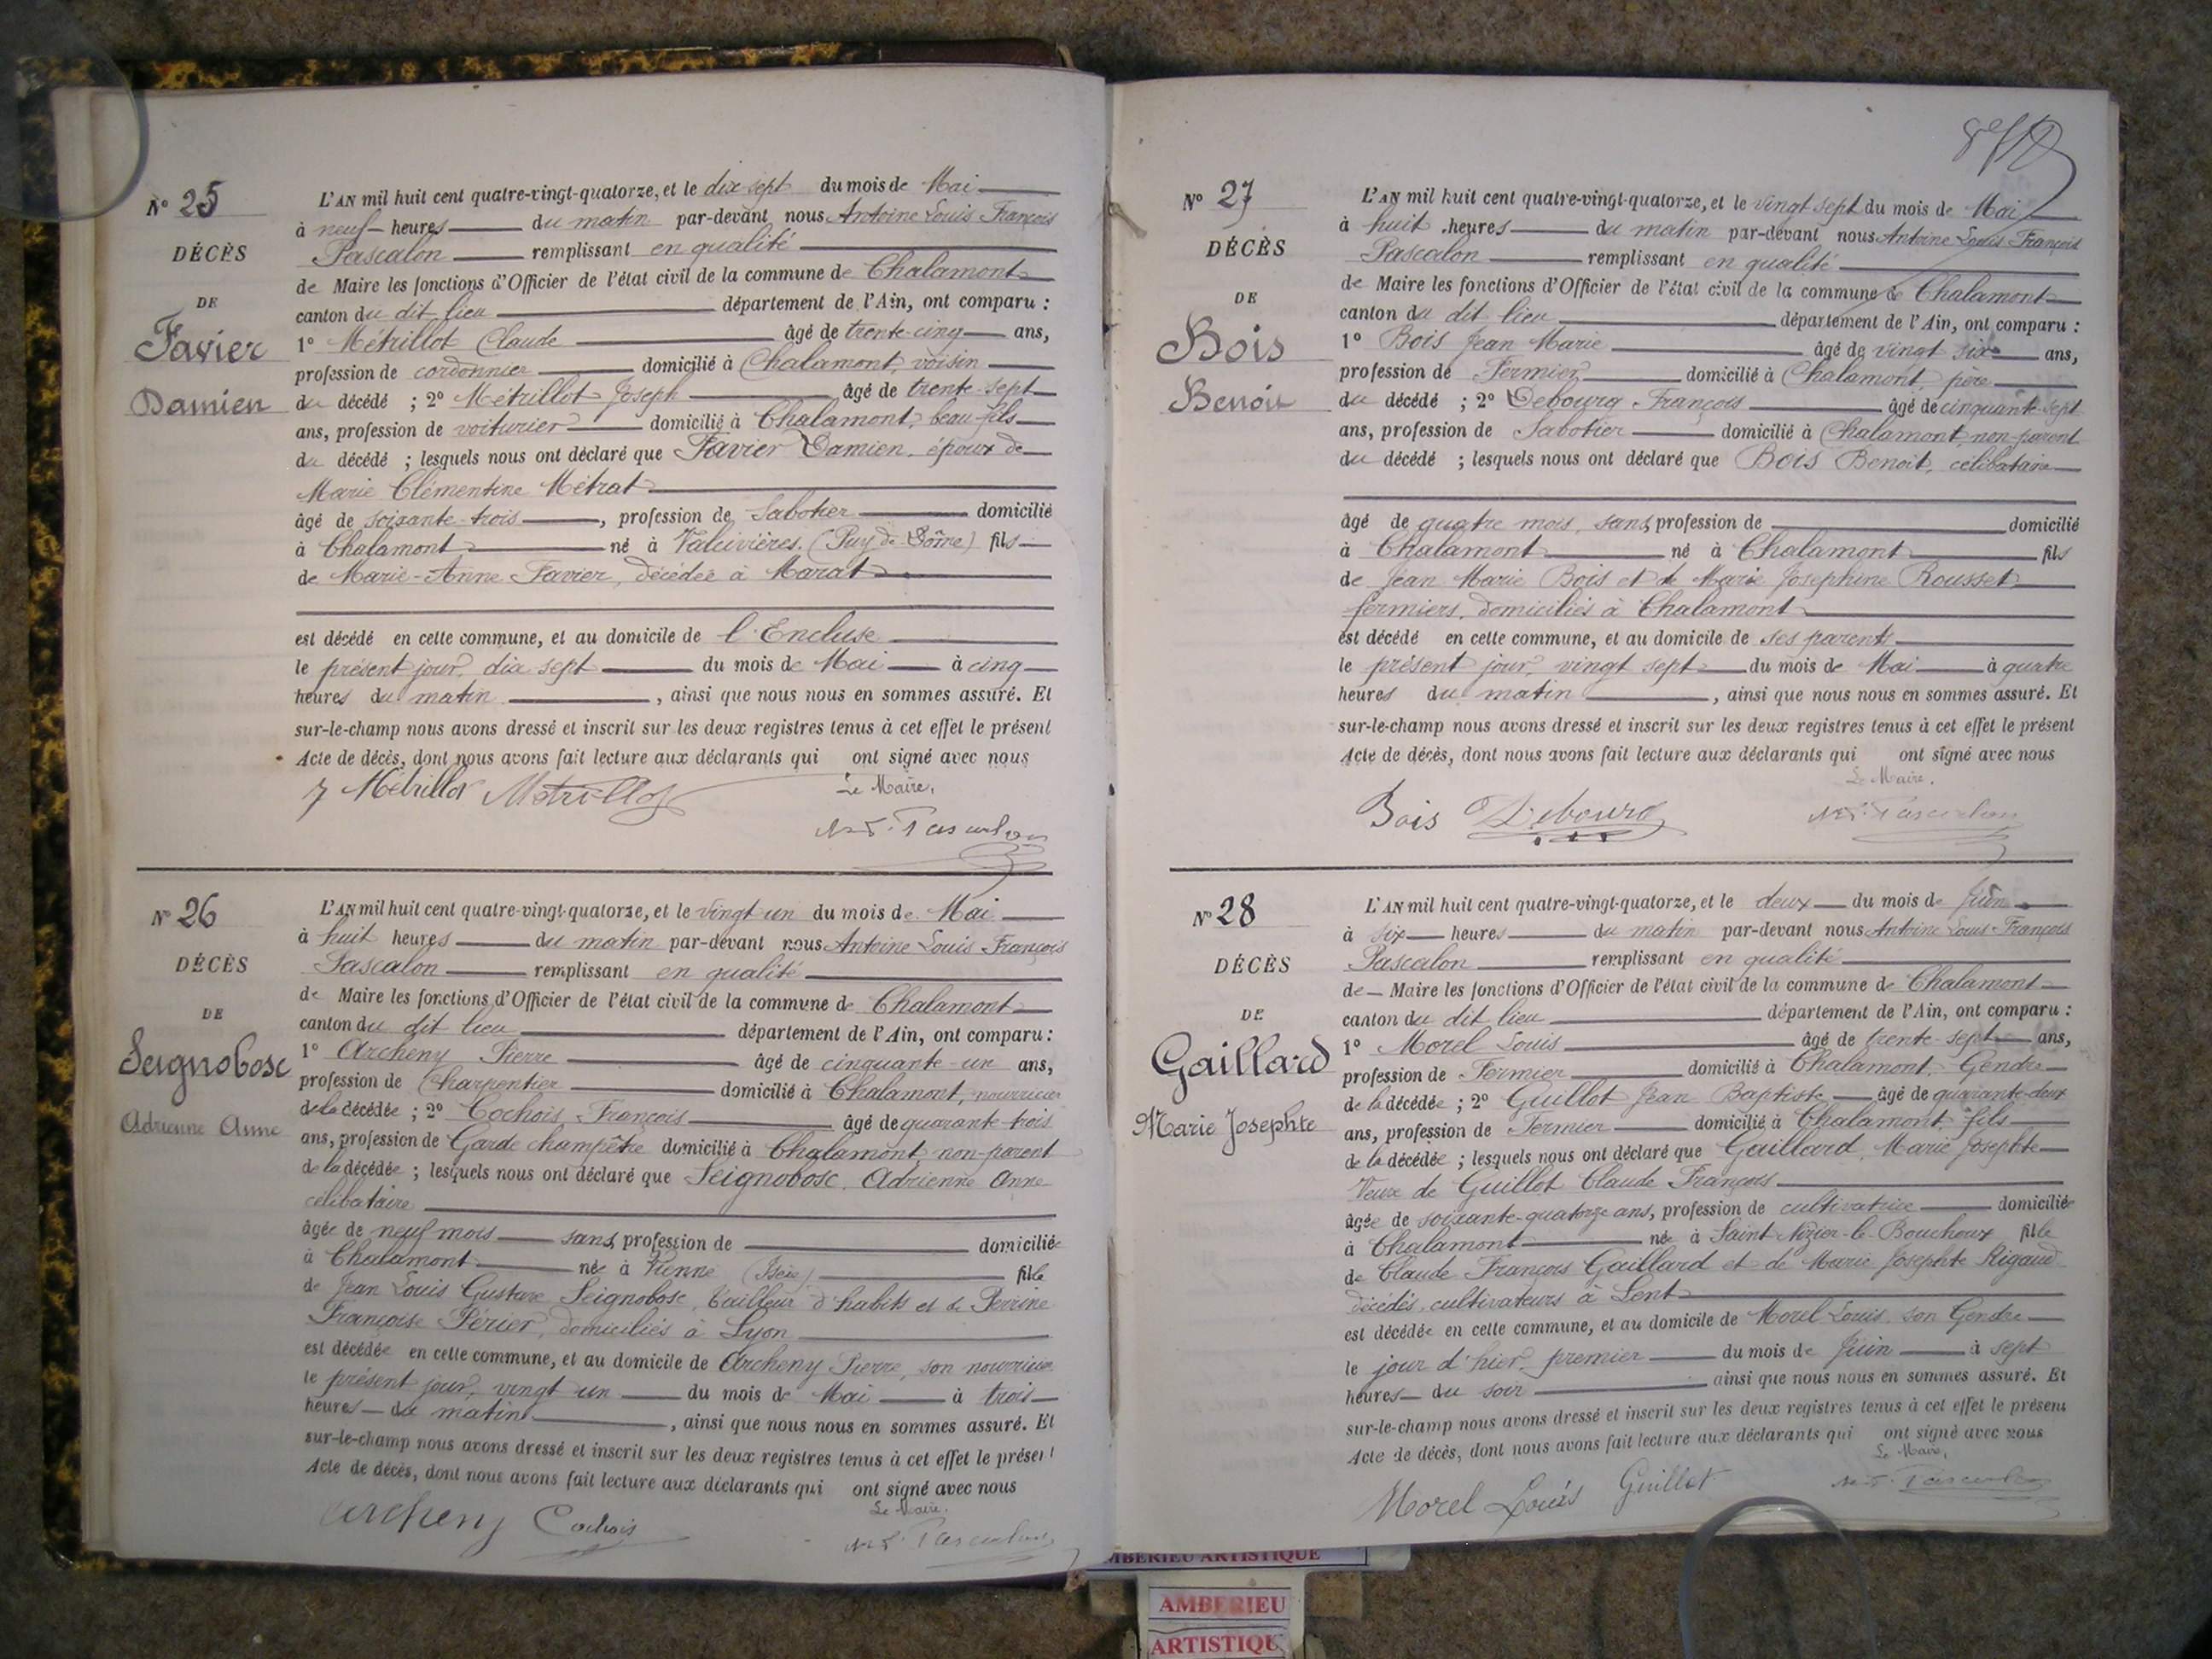 N° 25
DÉCÈS
DE
Favier
Damien
L'AN mil huit cent quatre-vingt-quatorze, et le dix sept du mois de Mai
à neuf heures du matin par-devant nous Antoine Louis François
Pascalon remplissant en qualité
de Maire les fonctions d'Officier de l'état civil de la commune de Chalamont
canton du dit lieu département de l'Ain, ont comparu :
1° Métrillot Claude âgé de trente-cinq ans,
profession de cordonnier domicilié à Chalamont, voisin
du décédé ; 2° Métrillot Joseph âgé de trente-sept
ans, profession de voiturier domicilié à Chalamont, beau-fils
du décédé ; lesquels nous ont déclaré que Favier Damien, époux de
Marie Clémentine Métrat
âgé de soixante-trois, profession de Sabotier domicilié
à Chalamont né à Valcivières, (Puy-de-Dôme) fils
de Marie-Anne Favier, décédée à Marat
est décédé en cette commune, et au domicile de l'Encluse
le présent jour, dix sept du mois de Mai à cinq
heures du matin, ainsi que nous nous en sommes assuré. Et
sur-le-champ nous avons dressé et inscrit sur les deux registres tenus à cet effet le présent
Acte de décès, dont nous avons fait lecture aux déclarants qui ont signé avec nous
Le Maire,
J Métrillot Métrillot Pascalon
N° 26
DÉCÈS
DE
Seignobosc
Adrienne Anne
L'AN mil huit cent quatre-vingt-quatorze, et le vingt un du mois de Mai
à huit heures du matin par-devant nous Antoine Louis François
Pascalon remplissant en qualité
de Maire les fonctions d'Officier de l'état civil de la commune de Chalamont
canton du dit lieu département de l'Ain, ont comparu :
1° Archeny Pierre âgé de cinquante-un ans,
profession de Charpentier domicilié à Chalamont, nourricier
de la décédée ; 2° Cochois François âgé de quarante-trois
ans, profession de Garde champêtre domicilié à Chalamont, non-parent
de la décédée ; lesquels nous ont déclaré que Seignobosc, Adrienne Anne
célibataire
âgée de neuf mois sans profession de domiciliée
à Chalamont né à Vienne (Isère) fille
de Jean Louis Gustave Seignobosc, tailleur d'habits et de Perrine
Françoise Périer, domiciliés à Lyon
est décédée en cette commune, et au domicile de Archeny Pierre, son nourricier
le présent jour, vingt un du mois de Mai à trois
heures du matin, ainsi que nous nous en sommes assuré. Et
sur-le-champ nous avons dressé et inscrit sur les deux registres tenus à cet effet le présent
Acte de décès, dont nous avons fait lecture aux déclarants qui ont signé avec nous
Le Maire,
archeny Cochois Pascalon
N° 27
DÉCÈS
DE
Bois
Benoit
L'AN mil huit cent quatre-vingt-quatorze, et le vingt sept du mois de Mai
à huit heures du matin par-devant nous Antoine Louis François
Pascalon remplissant en qualité
de Maire les fonctions d'Officier de l'état civil de la commune de Chalamont
canton du dit lieu département de l'Ain, ont comparu :
1° Bois Jean Marie âgé de vingt six ans,
profession de Fermier domicilié à Chalamont, père
du décédé ; 2° Debourg François âgé de cinquante-sept
ans, profession de Sabotier domicilié à Chalamont, non-parent
du décédé ; lesquels nous ont déclaré que Bois Benoit, célibataire
âgé de quatre mois, sans profession de domicilié
à Chalamont né à Chalamont fils
de Jean Marie Bois et de Marie Josephine Rousset
fermiers, domiciliés à Chalamont
est décédé en cette commune, et au domicile de ses parents
le présent jour, vingt sept du mois de Mai à quatre
heures du matin, ainsi que nous nous en sommes assuré. Et
sur-le-champ nous avons dressé et inscrit sur les deux registres tenus à cet effet le présent
Acte de décès, dont nous avons fait lecture aux déclarants qui ont signé avec nous
Le Maire,
Bois Debourg Pascalon
N° 28
DÉCÈS
DE
Gaillard
Marie Josephte
L'AN mil huit cent quatre-vingt-quatorze, et le deux du mois de Juin
à six heures du matin par-devant nous Antoine Louis François
Pascalon remplissant en qualité
de Maire les fonctions d'Officier de l'état civil de la commune de Chalamont
canton du dit lieu département de l'Ain, ont comparu :
1° Morel Louis âgé de trente-sept ans,
profession de Fermier domicilié à Chalamont, Gendre
de la décédée ; 2° Guillot Jean Baptiste âgé de quarante-deux
ans, profession de Fermier domicilié à Chalamont, fils
de la décédée ; lesquels nous ont déclaré que Gaillard, Marie Josephte
Veuve de Guillot Claude François
âgée de soixante-quatorze ans, profession de cultivatrice domiciliée
à Chalamont née à Saint Nizier-le-Bouchoux fille
de Claude François Gaillard et de Marie Josephte Rigaud
décédés, cultivateurs à Lent
est décédée en cette commune, et au domicile de Morel Louis, son Gendre
le jour d'hier, premier du mois de Juin à sept
heures du soir ainsi que nous nous en sommes assuré. Et
sur-le-champ nous avons dressé et inscrit sur les deux registres tenus à cet effet le présent
Acte de décès, dont nous avons fait lecture aux déclarants qui ont signé avec nous
Le Maire,
Morel Louis Guillot Pascalon
AMBERIEU ARTISTIQUE
AMBERIEU
ARTISTIQU